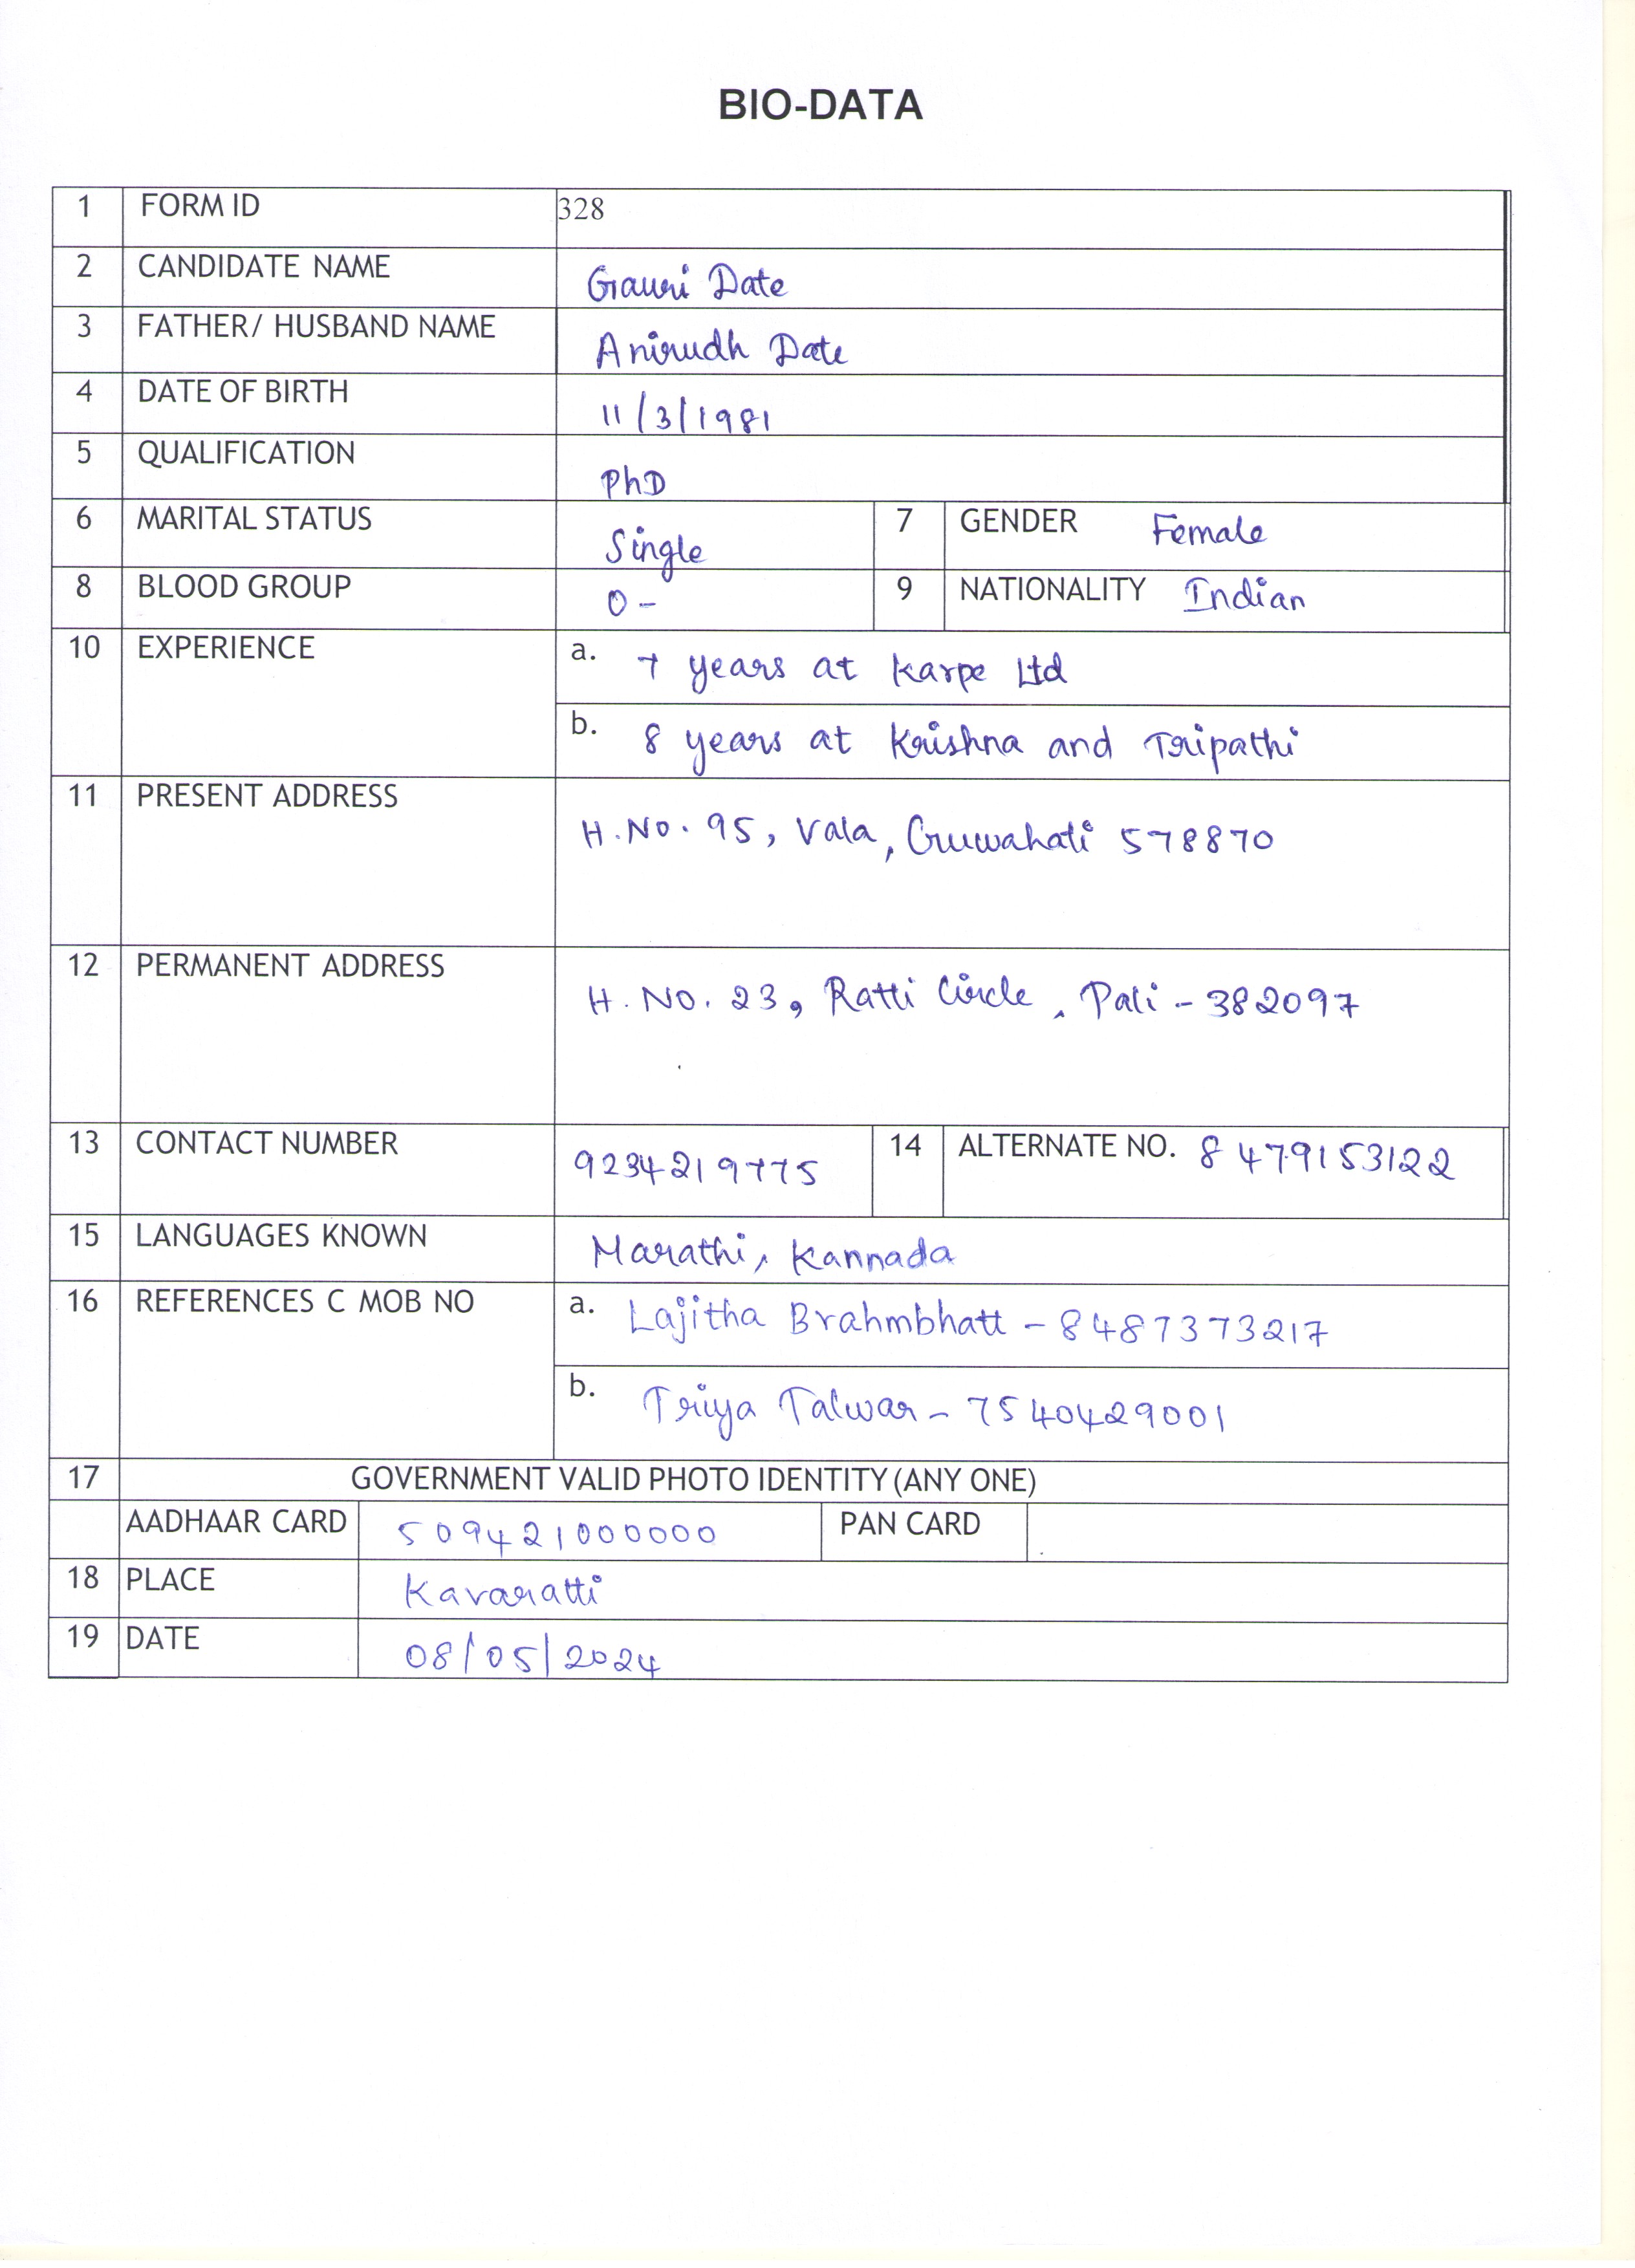 BIO-DATA
1 FORM ID 328
2 CANDIDATE NAME Gauri Date
3 FATHER/ HUSBAND NAME Anirudh Date
4 DATE OF BIRTH 11/3/1981
5 QUALIFICATION PhD
6 MARITAL STATUS Single 7 GENDER Female
8 BLOOD GROUP O- 9 NATIONALITY Indian
10 EXPERIENCE a. 7 years at Karpe Ltd
b. 8 years at Krishna and Tripathi
11 PRESENT ADDRESS H.No. 95, Vala, Guwahati 578870
12 PERMANENT ADDRESS H. No. 23, Ratti Circle, Pali - 382097
13 CONTACT NUMBER 9234219775 14 ALTERNATE NO. 8479153122
15 LANGUAGES KNOWN Marathi, Kannada
16 REFERENCES C MOB NO a. Lajitha Brahmbhatt - 8487373217
b. Triya Talwar - 7540429001
17 GOVERNMENT VALID PHOTO IDENTITY (ANY ONE)
AADHAAR CARD 509421000000 PAN CARD
18 PLACE Kavaratti
19 DATE 08/05/2024